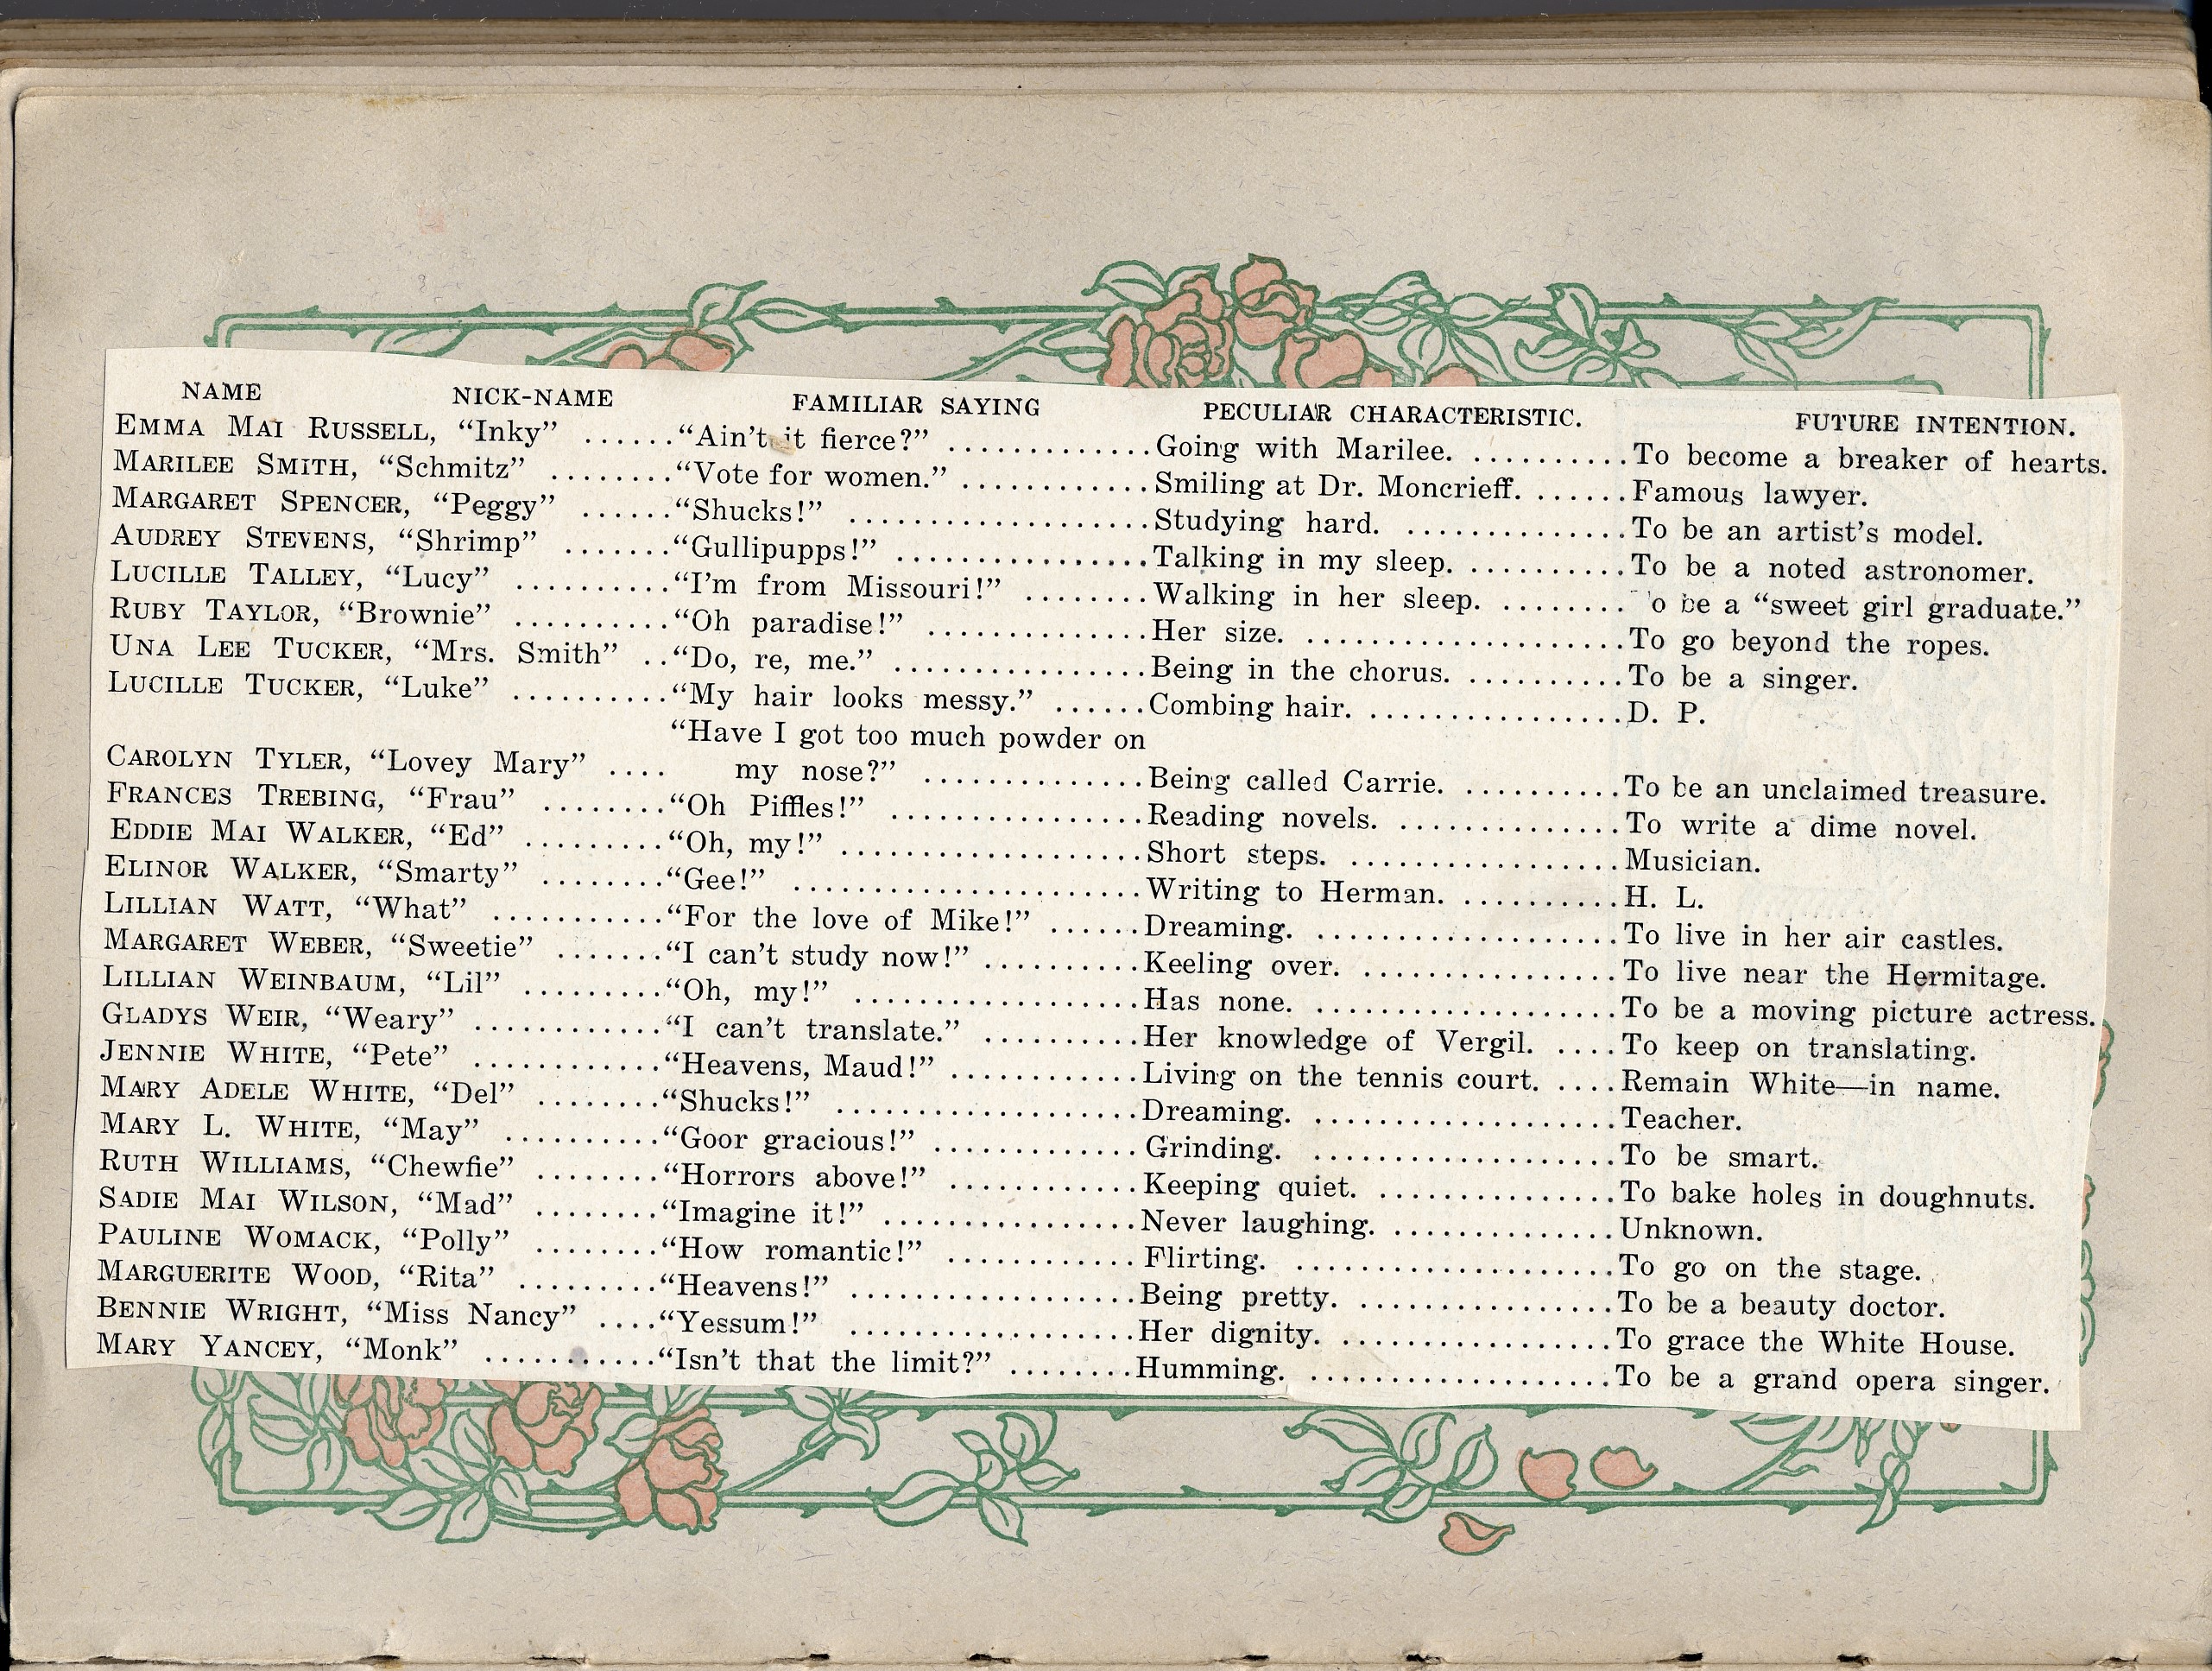 NAME NICK-NAME FAMILIAR SAYING PECULIAR CHARACTERISTIC. FUTURE INTENTION.
EMMA MAI RUSSELL, “Inky” ......“Ain't it fierce?” .............Going with Marilee. ..........To become a breaker of hearts.
MARILEE SMITH, “Schmitz” ........“Vote for women.” ............Smiling at Dr. Moncrieff. ......Famous lawyer.
MARGARET SPENCER, “Peggy” ......“Shucks!” ...................Studying hard. ..............To be an artist's model.
AUDREY STEVENS, “Shrimp” .......“Gullipupps!” ................Talking in my sleep. ..........To be a noted astronomer.
LUCILLE TALLEY, “Lucy” ..........“I'm from Missouri!” ........Walking in her sleep. ........ o be a “sweet girl graduate.”
RUBY TAYLOR, “Brownie” ..........“Oh paradise!” ..............Her size. ....................To go beyond the ropes.
UNA LEE TUCKER, “Mrs. Smith” ..“Do, re, me.” ................Being in the chorus. ..........To be a singer.
LUCILLE TUCKER, “Luke” ..........“My hair looks messy.” ......Combing hair. ................D. P.
“Have I got too much powder on
CAROLYN TYLER, “Lovey Mary” .... my nose?” ..............Being called Carrie. ..........To be an unclaimed treasure.
FRANCES TREBING, “Frau” ........“Oh Piffles!” ................Reading novels. ..............To write a dime novel.
EDDIE MAI WALKER, “Ed” .........“Oh, my!” ...................Short steps. .................Musician.
ELINOR WALKER, “Smarty” ........“Gee!” ......................Writing to Herman. ..........H. L.
LILLIAN WATT, “What” ...........“For the love of Mike!” ......Dreaming. ...................To live in her air castles.
MARGARET WEBER, “Sweetie” .......“I can't study now!” ..........Keeling over. ................To live near the Hermitage.
LILLIAN WEINBAUM, “Lil” .........“Oh, my!” ..................Has none. ...................To be a moving picture actress.
GLADYS WEIR, “Weary” ............“I can't translate.” ..........Her knowledge of Vergil. ....To keep on translating.
JENNIE WHITE, “Pete” ............“Heavens, Maud!” ............Living on the tennis court. ....Remain White—in name.
MARY ADELE WHITE, “Del” ........“Shucks!” ...................Dreaming. ...................Teacher.
MARY L. WHITE, “May” ..........“Goor gracious!” .............Grinding. ...................To be smart.
RUTH WILLIAMS, “Chewfie” ........“Horrors above!” ............Keeping quiet. ...............To bake holes in doughnuts.
SADIE MAI WILSON, “Mad” ........“Imagine it!” ................Never laughing. .............Unknown.
PAULINE WOMACK, “Polly” ........“How romantic!” ............Flirting. ....................To go on the stage.
MARGUERITE WOOD, “Rita” .........“Heavens!” ..................Being pretty. ................To be a beauty doctor.
BENNIE WRIGHT, “Miss Nancy” ....“Yessum!” ..................Her dignity. .................To grace the White House.
MARY YANCEY, “Monk” ...........“Isn't that the limit?” ........Humming. ...................To be a grand opera singer.